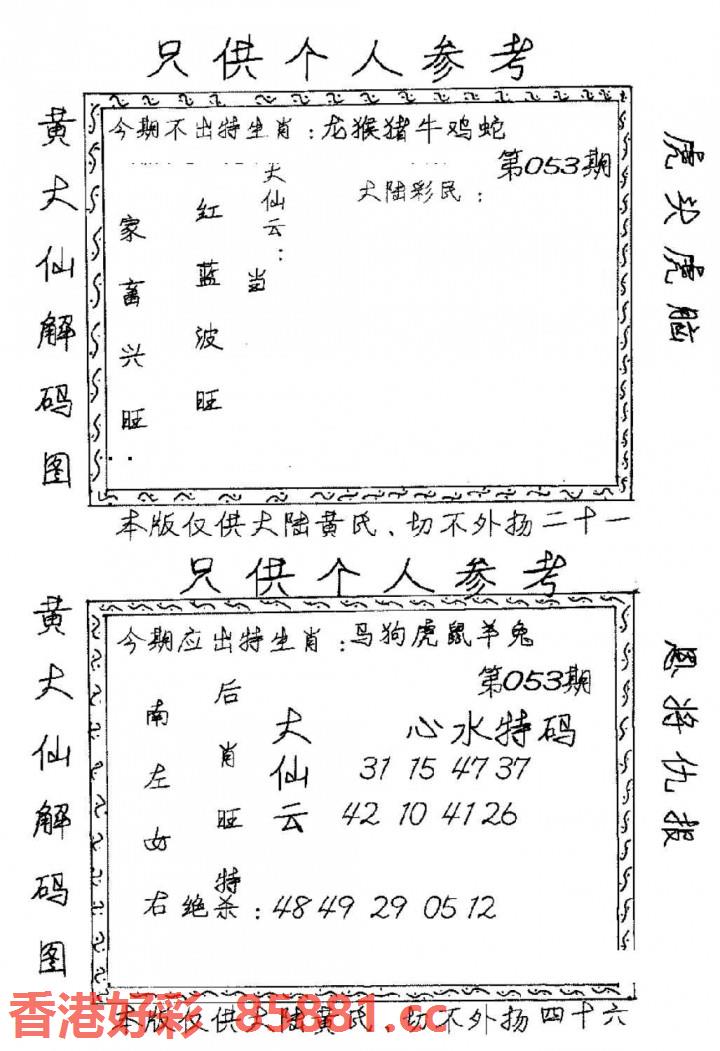 只供个人参考
黄大仙解码图
今期不出特生肖：龙猴猪牛鸡蛇
第053期
大陆彩民：
大仙云：
当
红蓝波旺
家畜兴旺
虎头虎脑
本版仅供大陆黄氏、切不外扬二十一
只供个人参考
黄大仙解码图
今期应出特生肖：马狗虎鼠羊兔
第053期
心水特码
大仙云
31 15 47 37
42 10 41 26
后肖旺特
南左女右
绝杀：48 49 29 05 12
恩将仇报
本版仅供大陆黄氏、切不外扬四十六
香港好彩 85881.cc